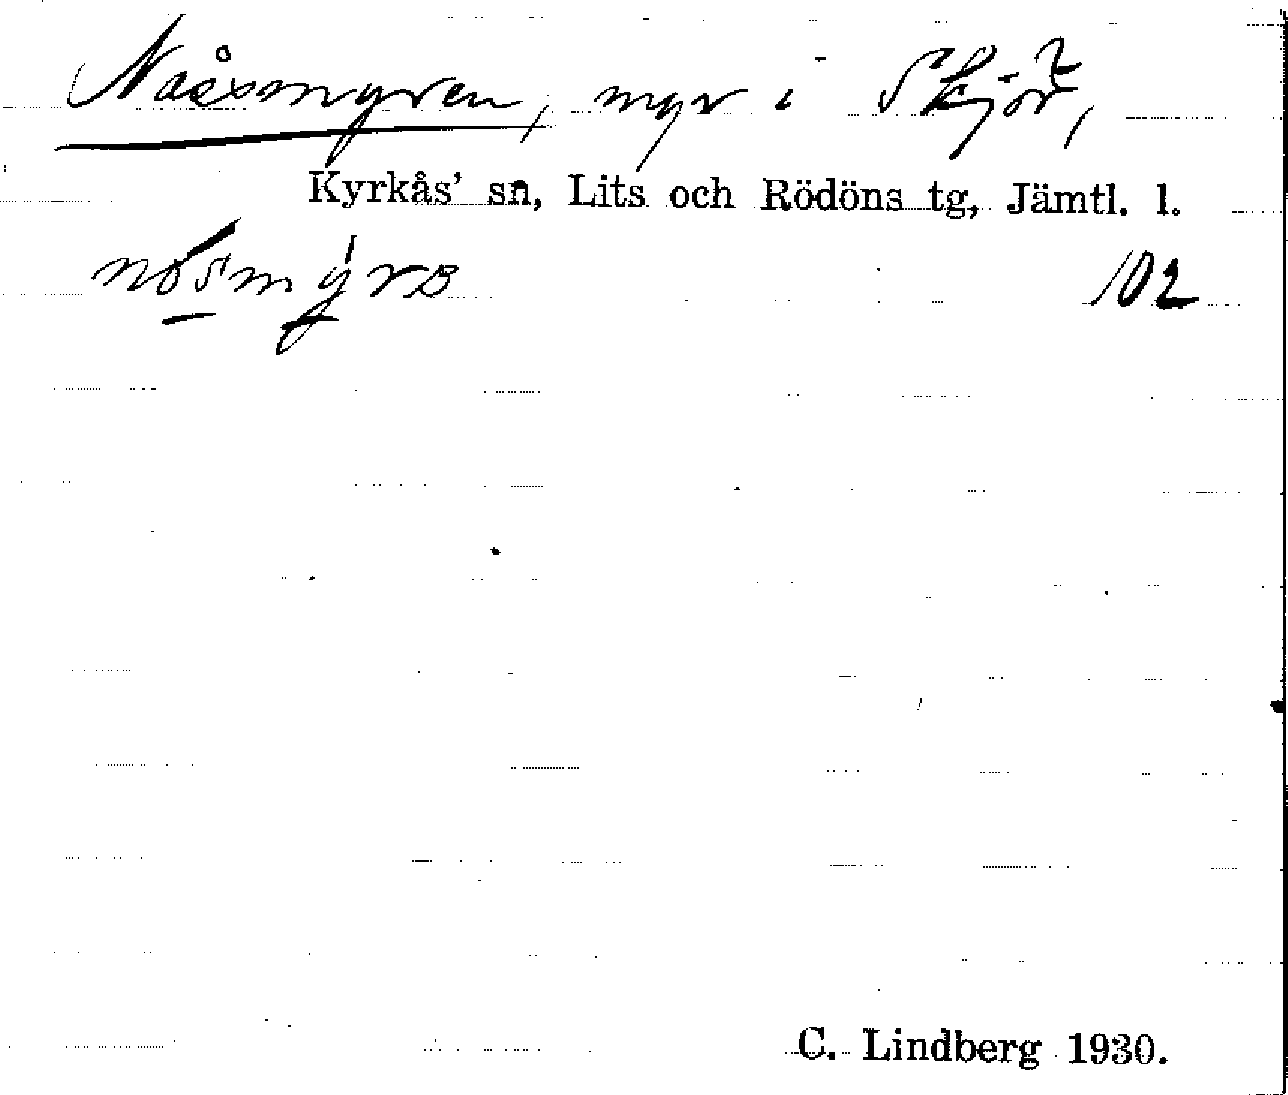 Nåsmyren, myr i Skjör,
Kyrkås' sn, Lits och Rödöns tg, Jämtl. l.
102
C. Lindberg 1930.